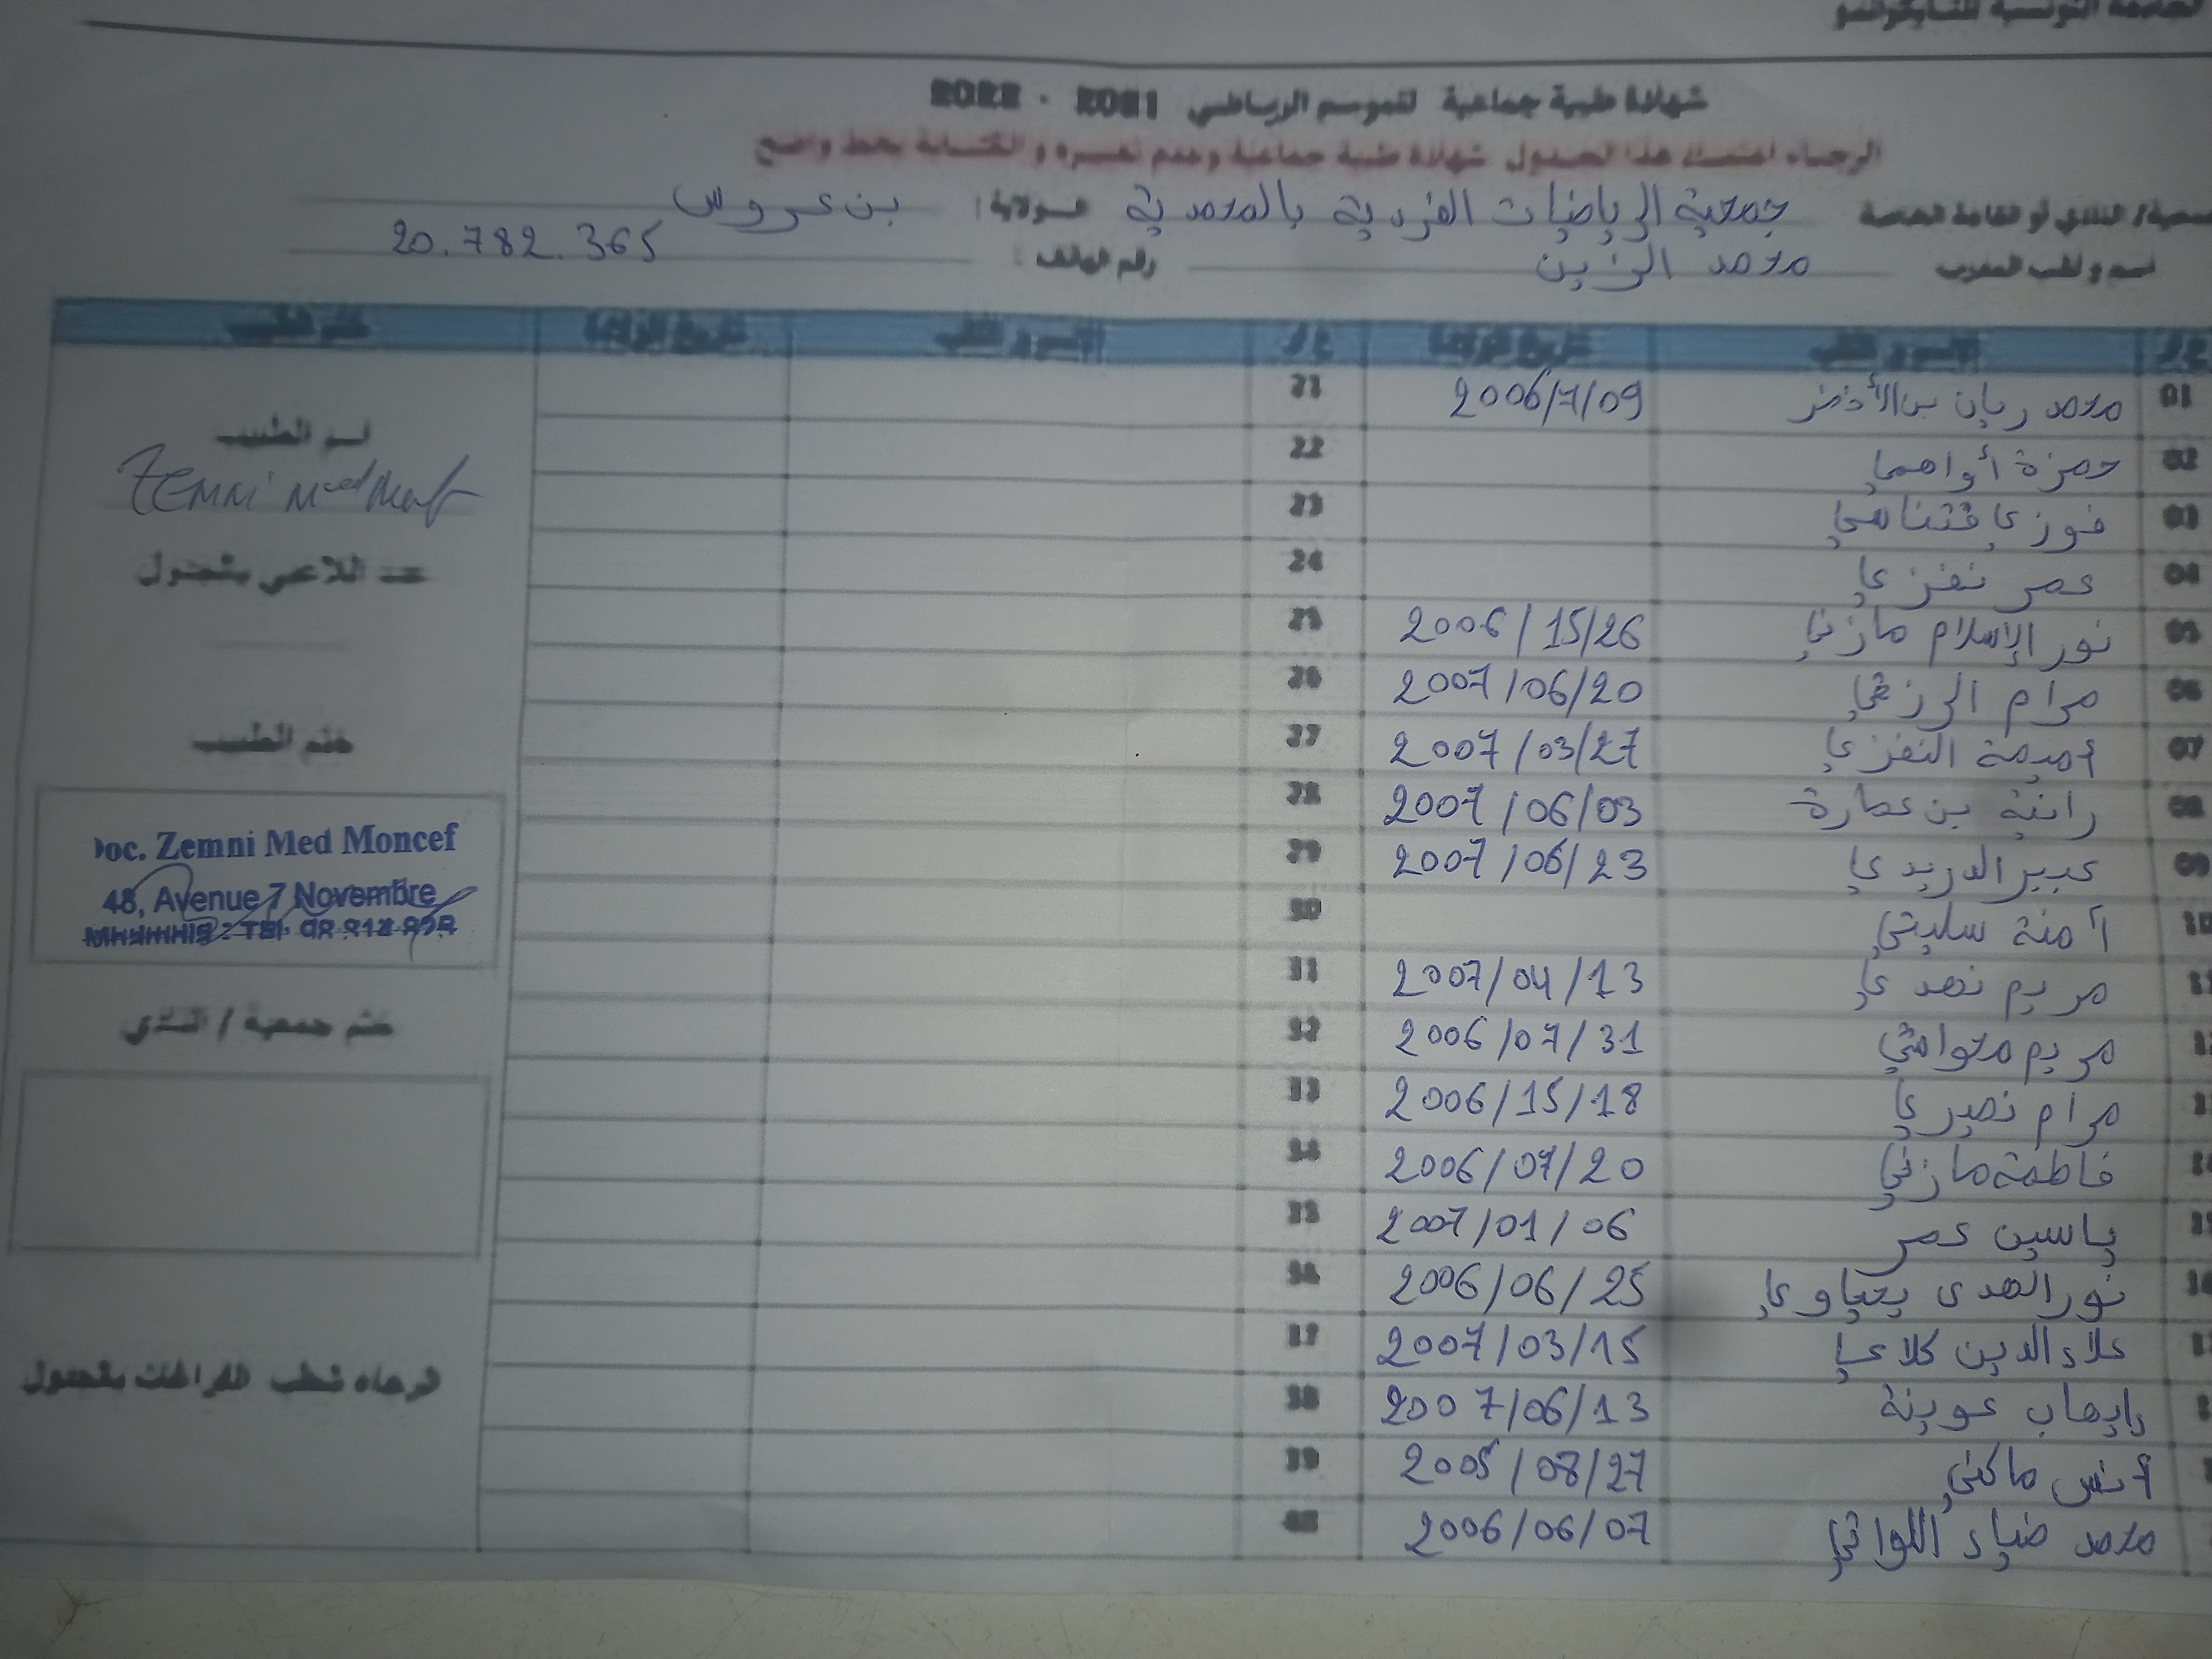 شهادة طبية جماعية للموسم الرياضي 2021 - 2022
الرجاء اعتماد هذا الجدول شهادة طبية جماعية وعدم تغييره و الكتابة بخط واضح
جمعية الرياضيات الفردية بالمحمدية الولاية: بن عروس
اسم ولقب المدرب محمد الزين رقم الهاتف: 20.782.365
ع ر الاسم و اللقب تاريخ الولادة ع ر الاسم و اللقب تاريخ الولادة ختم الطبيب
01 محمد ريان بن الأخضر 2006/7/09 21
02 حمزة 22
03 فوزي 23
04 عمر نفزي 24
05 نور الإسلام مازني 2006/15/26 25
06 مرام الرزقي 2007/06/20 26
07 أميمة النفزي 2007/03/27 27
08 رانية بن عمارة 2007/06/03 28
09 عبير الدريدي 2007/06/23 29
10 آمنة سليتي 30
مريم نهدي 2007/04/13 31
مريم 2006/07/31 32
مرام نصيري 2006/15/18 33
فاطمة مازني 2006/07/20 34
ياسين عمر 2007/01/06 35
نور الهدى يحياوي 2006/06/25 36
علاء الدين كلاعي 2007/03/15 37
إيهاب عوينة 2007/06/13 38
أنس ماكني 2005/08/27 39
محمد ضياء اللواتي 2006/06/07 40
اسم الطبيب
Zemni Med
عدد اللاعبي بالجدول
ختم الطبيب
Doc. Zemni Med Moncef
48, Avenue 7 Novembre
ختم جمعية / النادي
الرجاء شطب الفراغات بالجدول